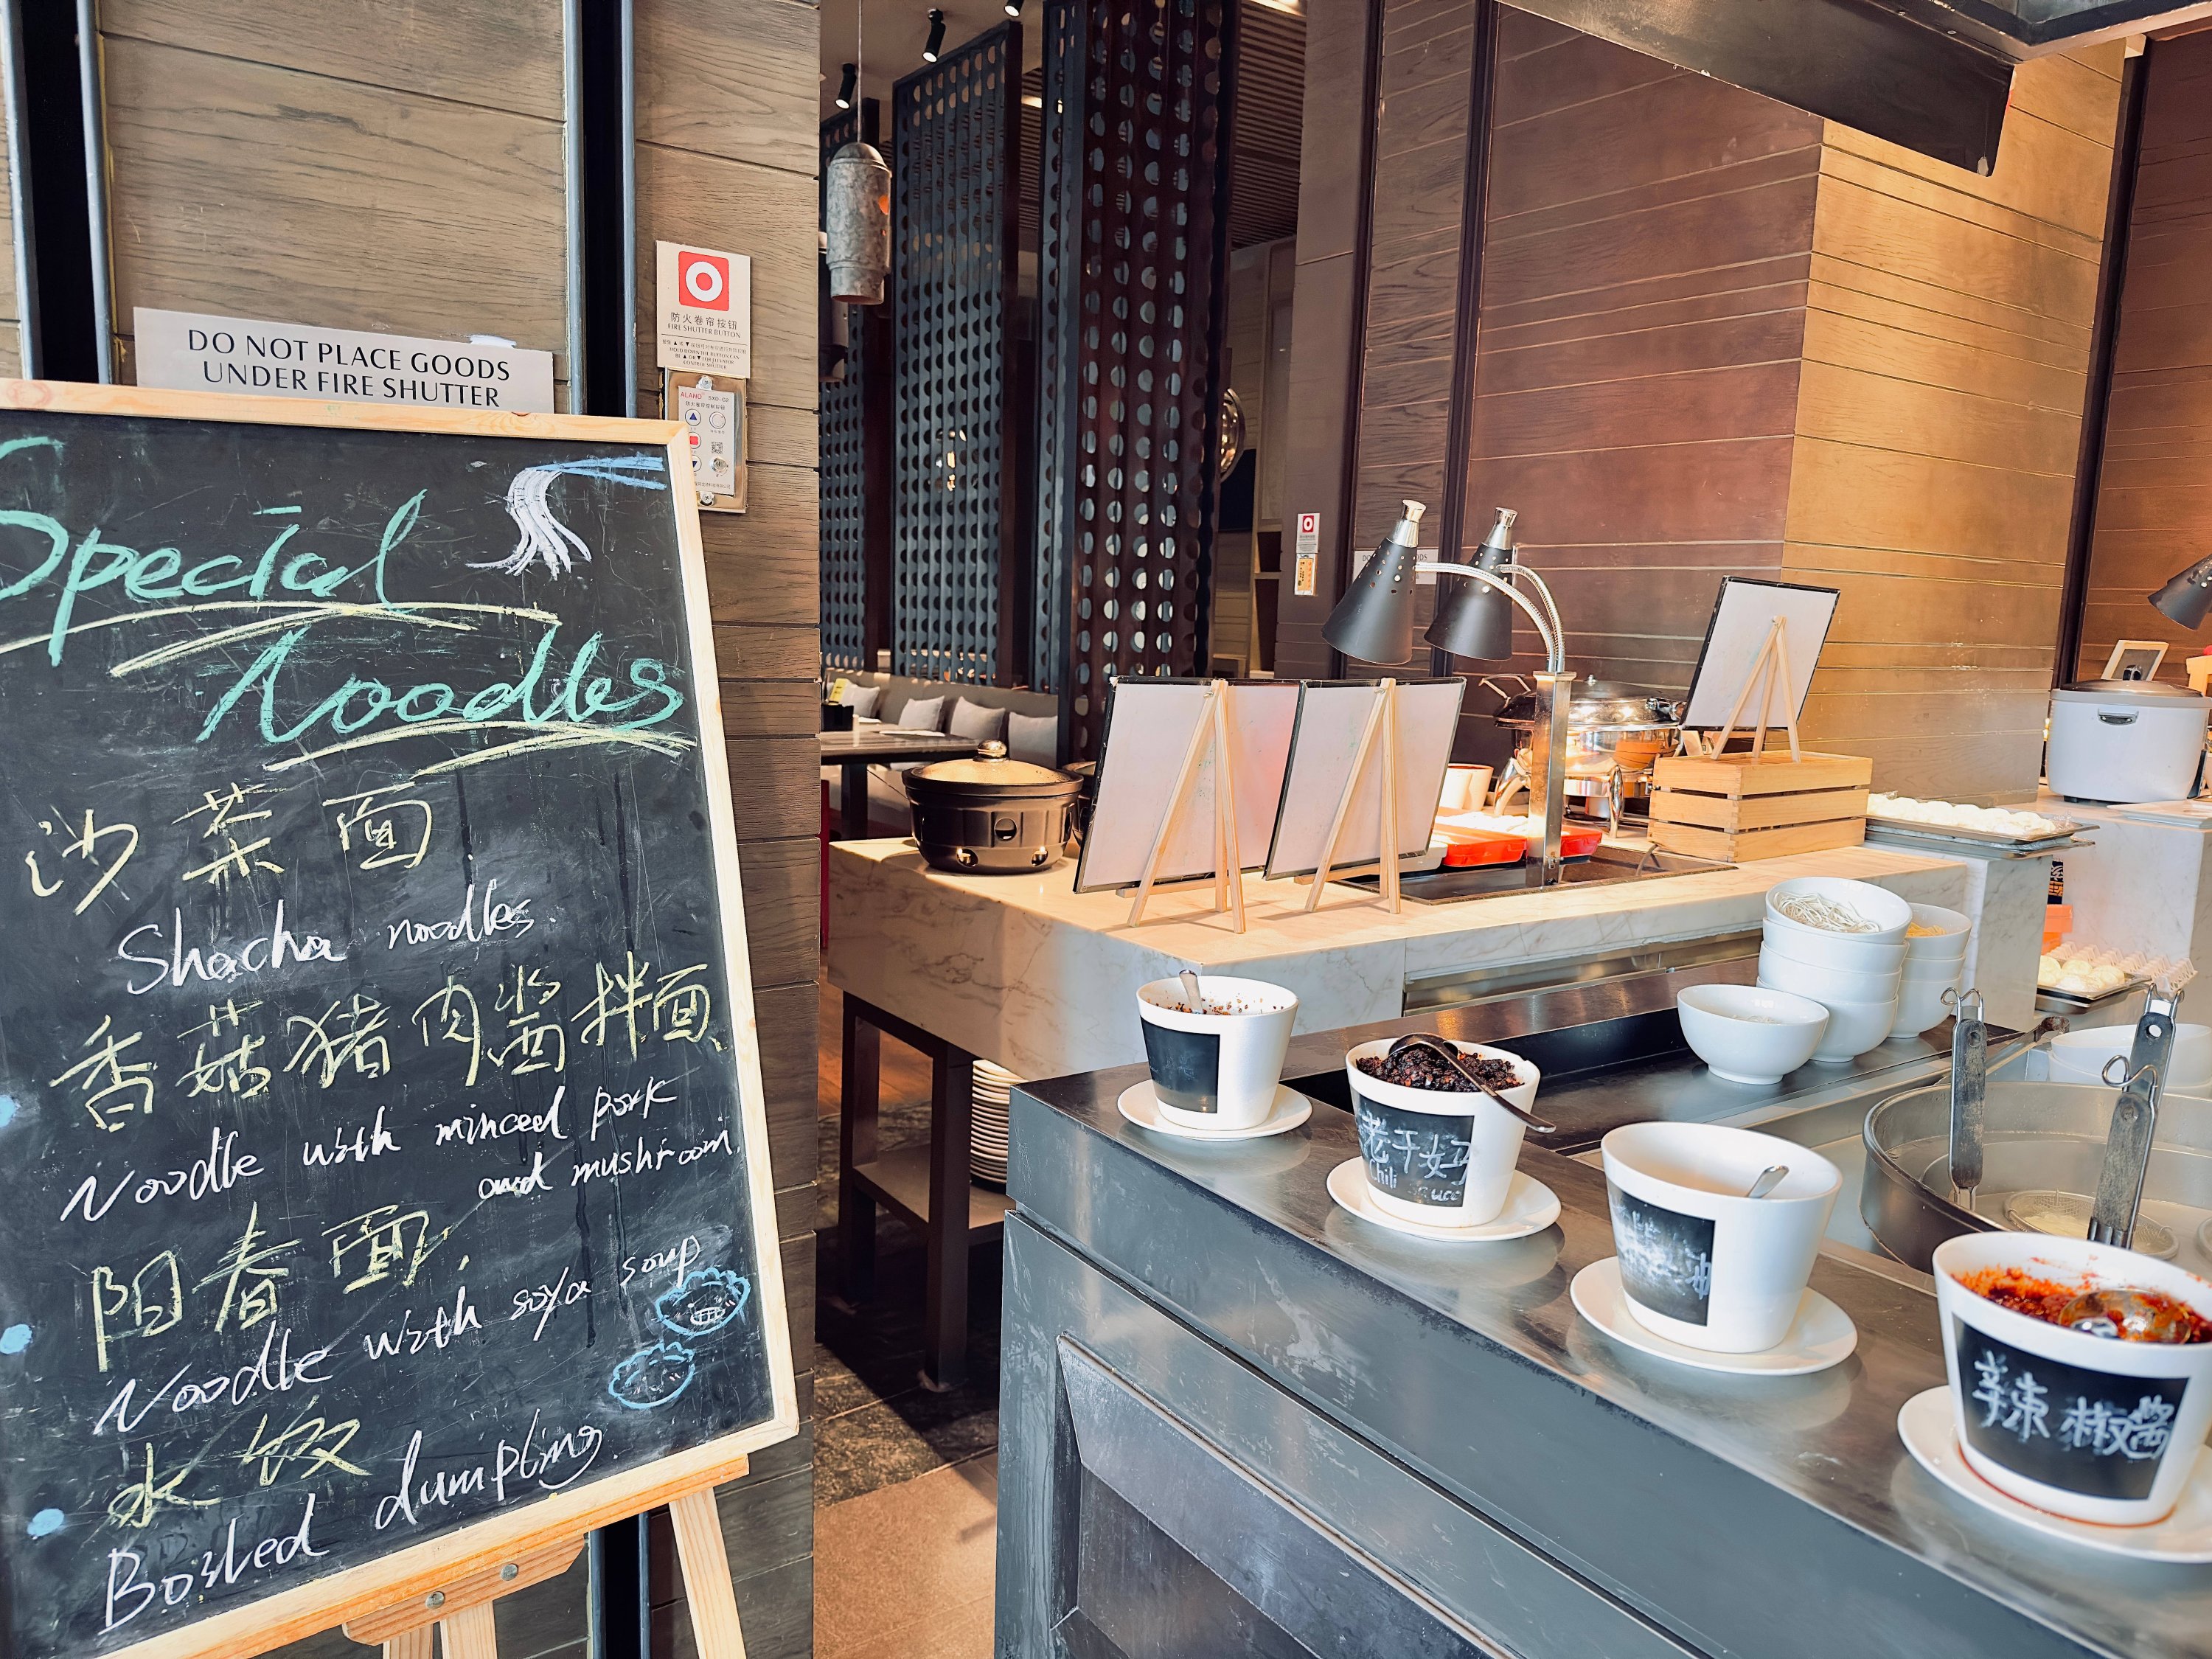 DO NOT PLACE GOODS
UNDER FIRE SHUTTER
防火卷帘按钮
FIRE SHUTTER BUTTON
ALAND
Special
Noodles
沙茶面
Shacha noodles
香菇猪肉酱拌面
Noodle with minced pork
and mushroom.
阳春面
Noodle with soya soup
水饺
Boiled dumpling.
老干妈
Chili
辣椒酱